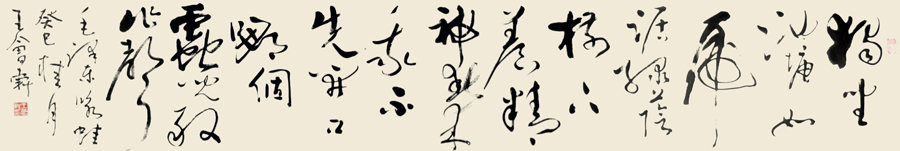 獨坐
池塘如
虎
踞綠蔭
樹下
養精
神春來
我不
先開口
哪個
蟲兒敢
作聲
毛澤東咏蛙
癸巳桂月
王會